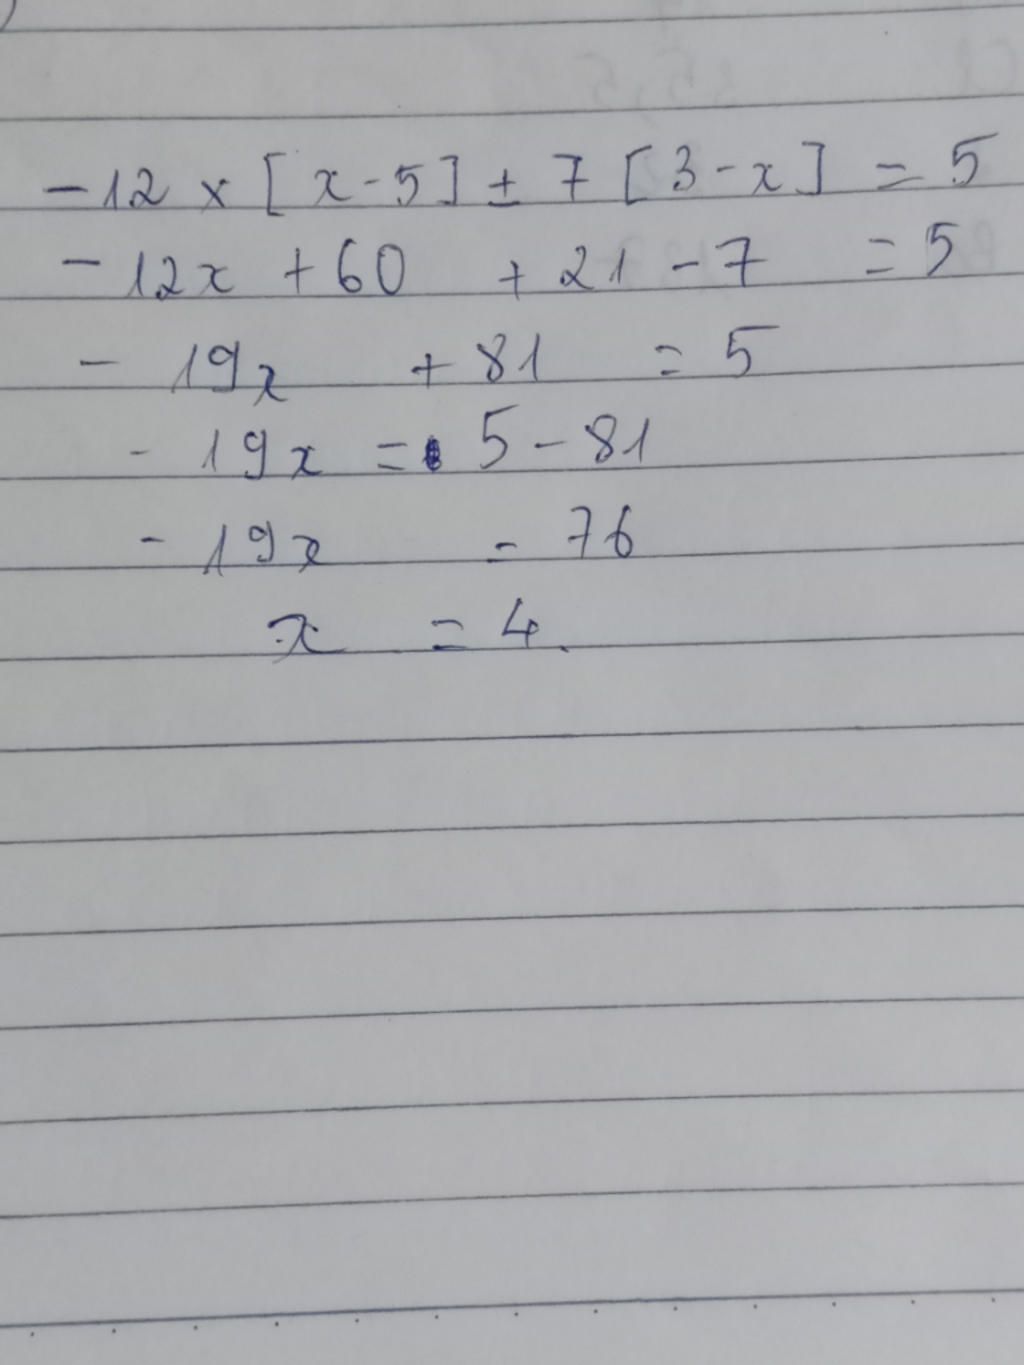 -12 × [x-5] ± 7 [3-x] = 5
-12x +60 +21 -7 = 5
- 19x +81 = 5
- 19x = 5-81
- 19x - 76
x = 4.